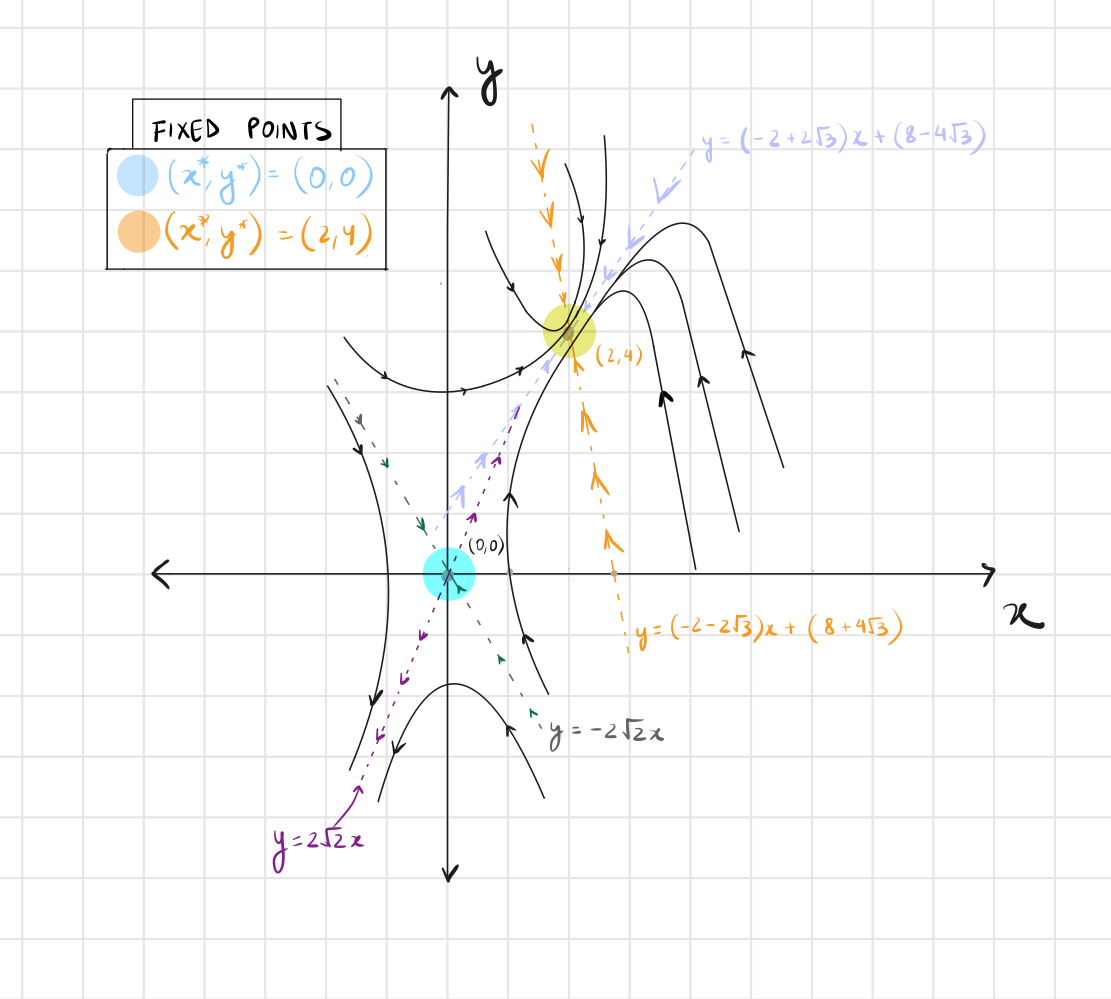 y
FIXED POINTS
(x*, y*) = (0,0)
(x*, y*) = (2,4)
y = (-2+2√3)x + (8-4√3)
(2,4)
(0,0)
x
y = (-2-2√3)x + (8+4√3)
y = -2√2x
y = 2√2x